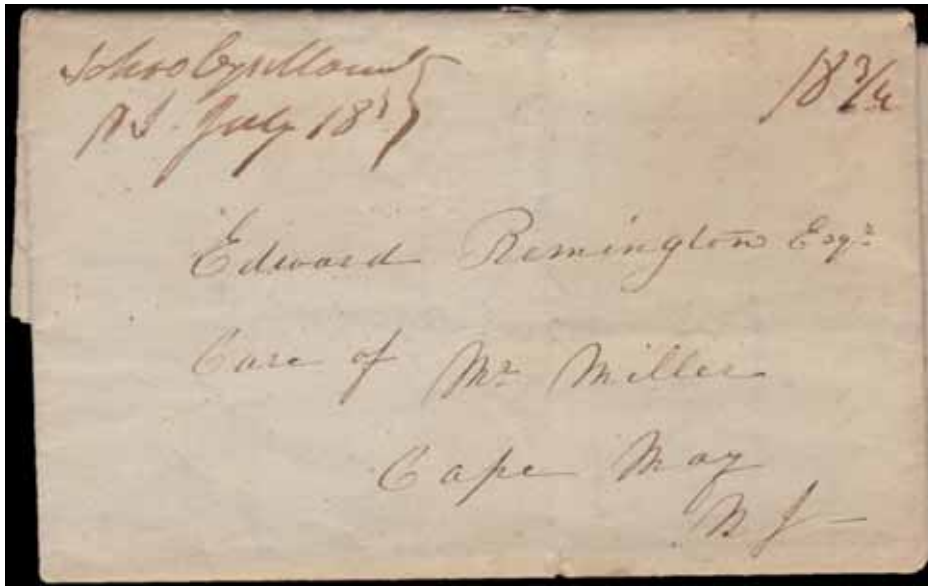 Schooleys Mount
NJ. July 18th
18 3/4
Edward Remington Esqr
Care of Mr Miller
Cape May
N J